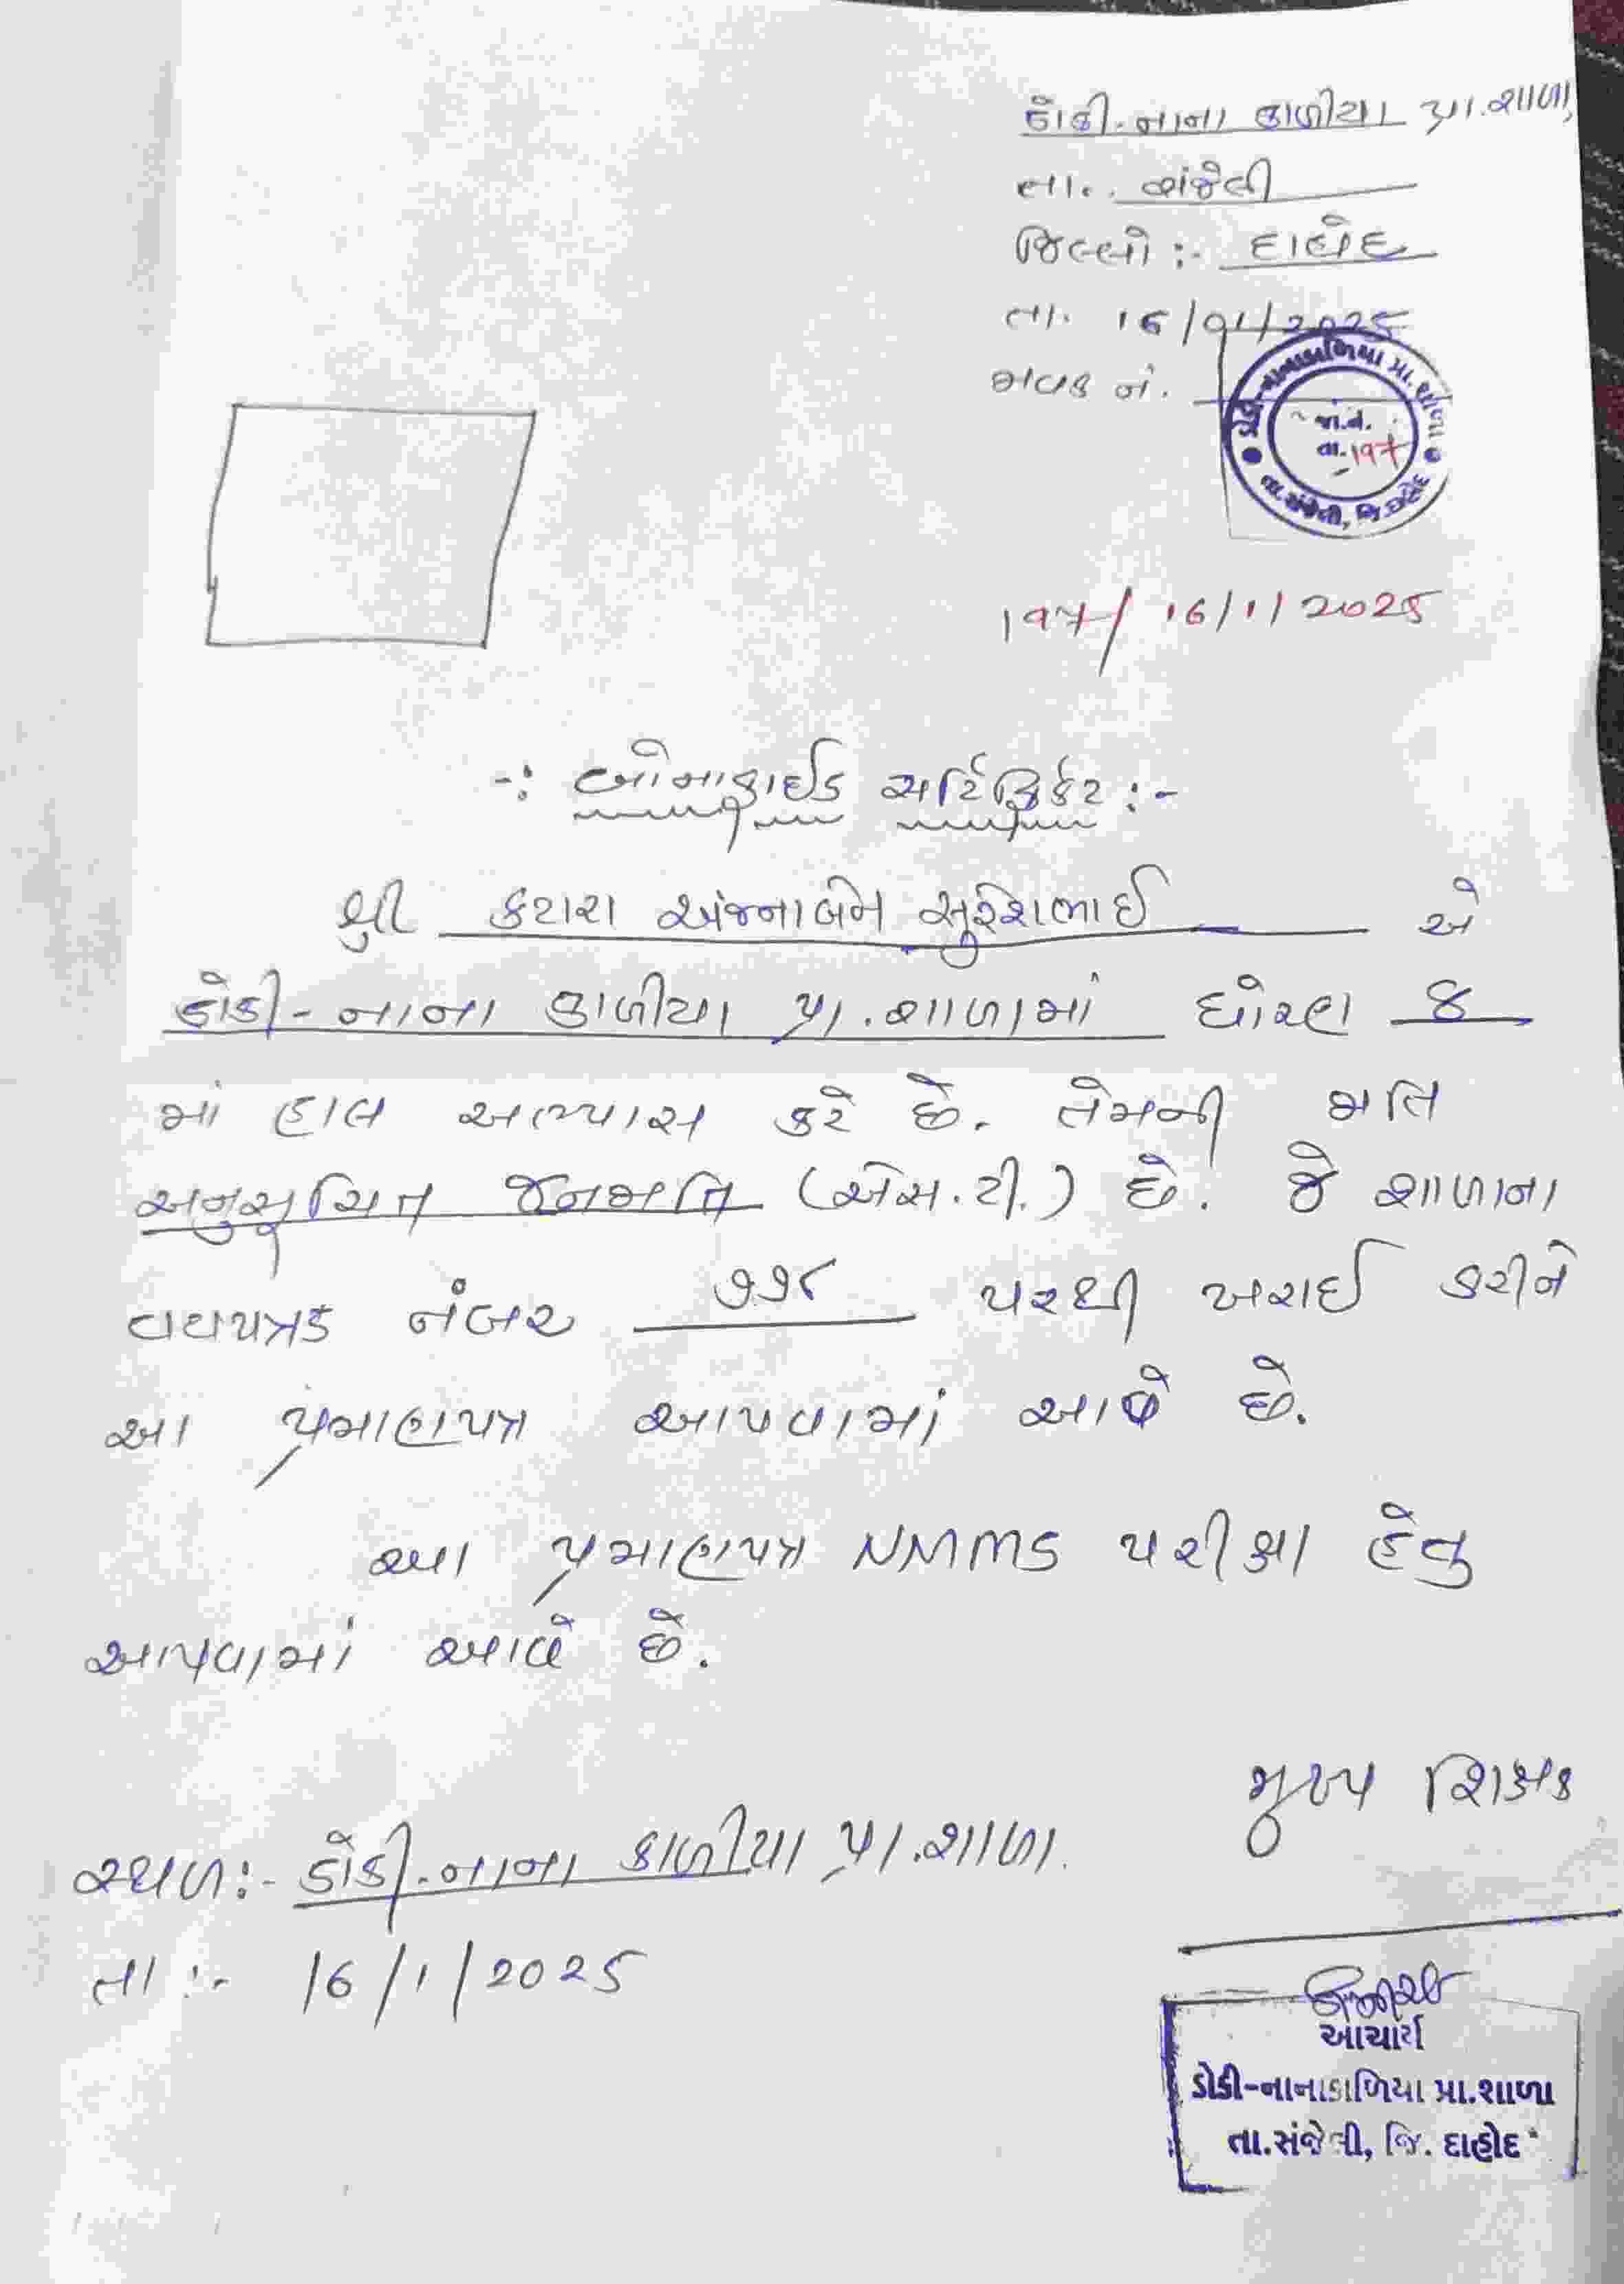 ડોકી-નાના કાળીયા પ્રા.શાળા,
તા. સંજેલી
જિલ્લો :- દાહોદ
તા. 16/01/2025
જાવક નં.
ડોકી-નાનાકાળિયા પ્રા. શાળા
જા.નં.
તા.સંજેલી, જિ.દાહોદ
16/1/2025
-: બોનાફાઈડ સર્ટિફિકેટ :-
શ્રી કટારા અંજનાબેન સુરેશભાઈ એ
ડોકી-નાના કાળીયા પ્રા.શાળામાં ધોરણ 8
માં હાલ અભ્યાસ કરે છે. તેમની જાતિ
અનુસૂચિત જનજાતિ (એસ.ટી.) છે. જે શાળાના
વયપત્રક નંબર ૭૭૮ પરથી ખરાઈ કરીને
આ પ્રમાણપત્ર આપવામાં આવે છે.
આ પ્રમાણપત્ર NMMS પરીક્ષા હેતુ
આપવામાં આવે છે.
મુખ્ય શિક્ષક
સ્થળ:- ડોકી-નાના કાળીયા પ્રા.શાળા.
તા :- 16/1/2025
આચાર્ય
ડોકી-નાનાકાળિયા પ્રા.શાળા
તા.સંજેલી, જિ. દાહોદ